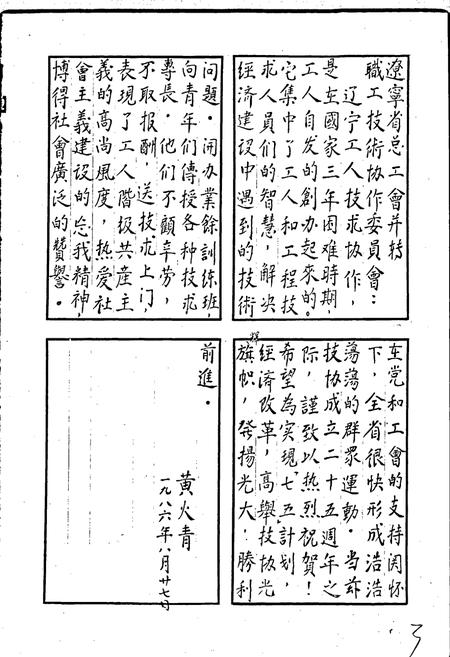 遼寧省总工會并转
職工技術协作委員會：
辽宁工人技术协作，
是在國家三年困难時期，
工人自发的創办起來的。
它集中了工人和工程技
术人員们的智慧，解决
經济建设中遇到的技術
问題。开办業餘訓练班，
向青年们傳授各种技术
專長。他们不顧辛劳，
不取报酬，送技术上门，
表現了工人階级共產主
義的高尚風度，热爱社
會主義建设的忘我精神，
博得社會廣泛的贊譽。
在党和工會的支持関怀
下，全省很快形成浩浩
荡荡的群眾運動。当兹
技协成立二十五週年之
际，謹致以热烈祝賀！
希望為实現“七五”計划，
經济改革，高舉技协光
輝旗帜，發揚光大！勝利
前進。
黄火青
一九八六年八月廿七日
3